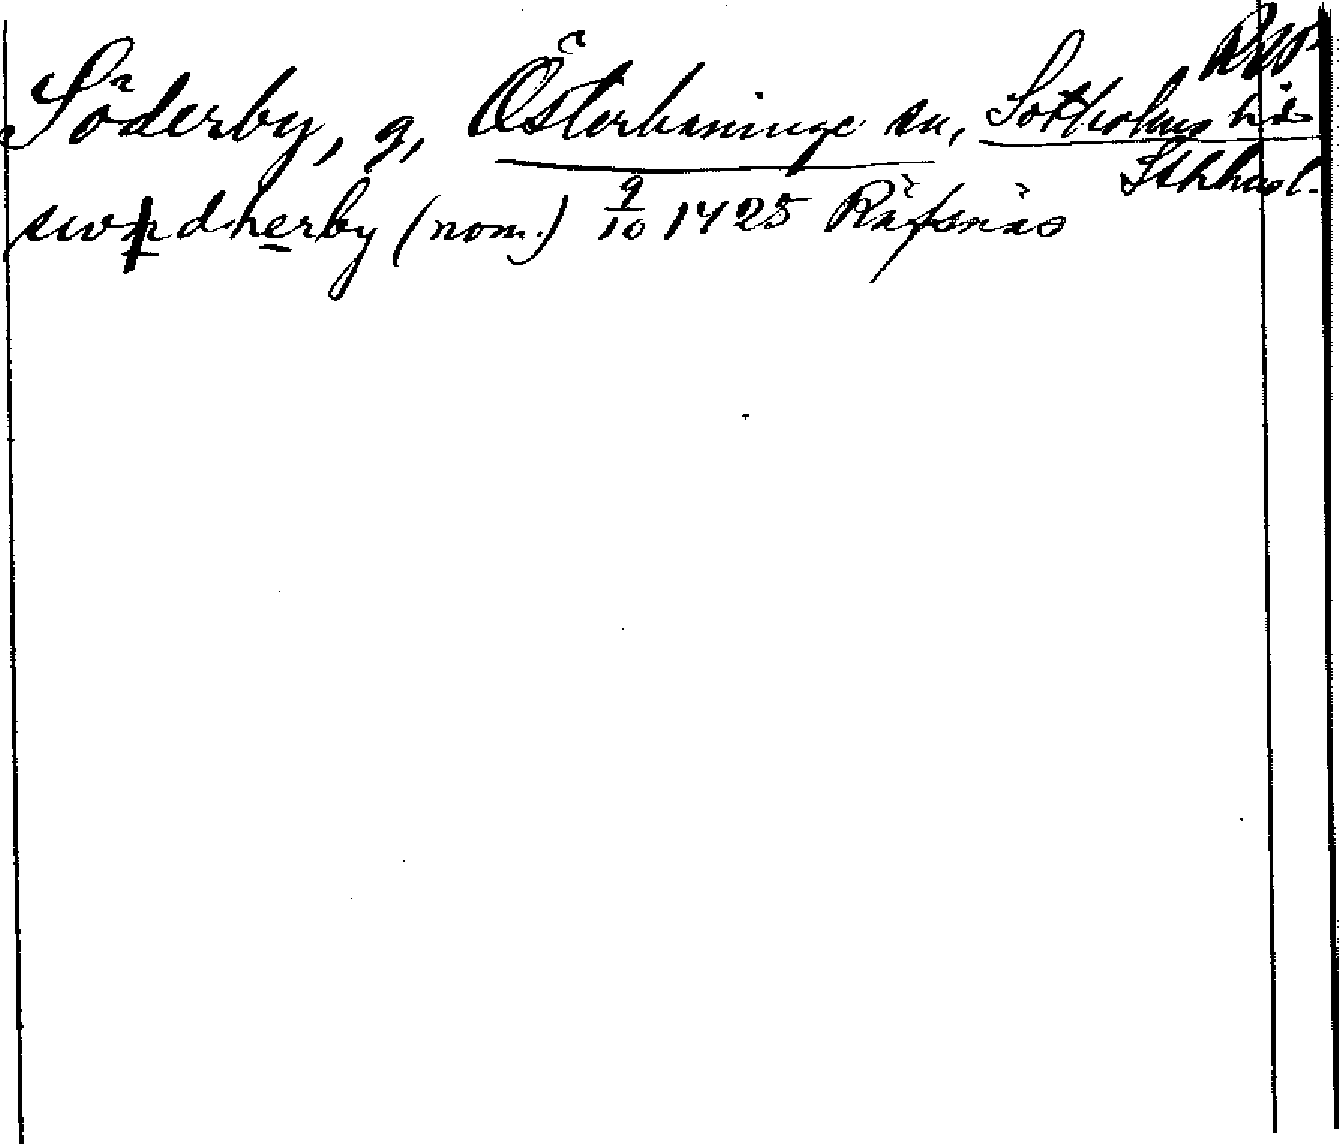 Söderby, g, Österhaninge sn, Sotholms hd
Sthlms l.
(nom.) 9/10 1425 Räfsnäs